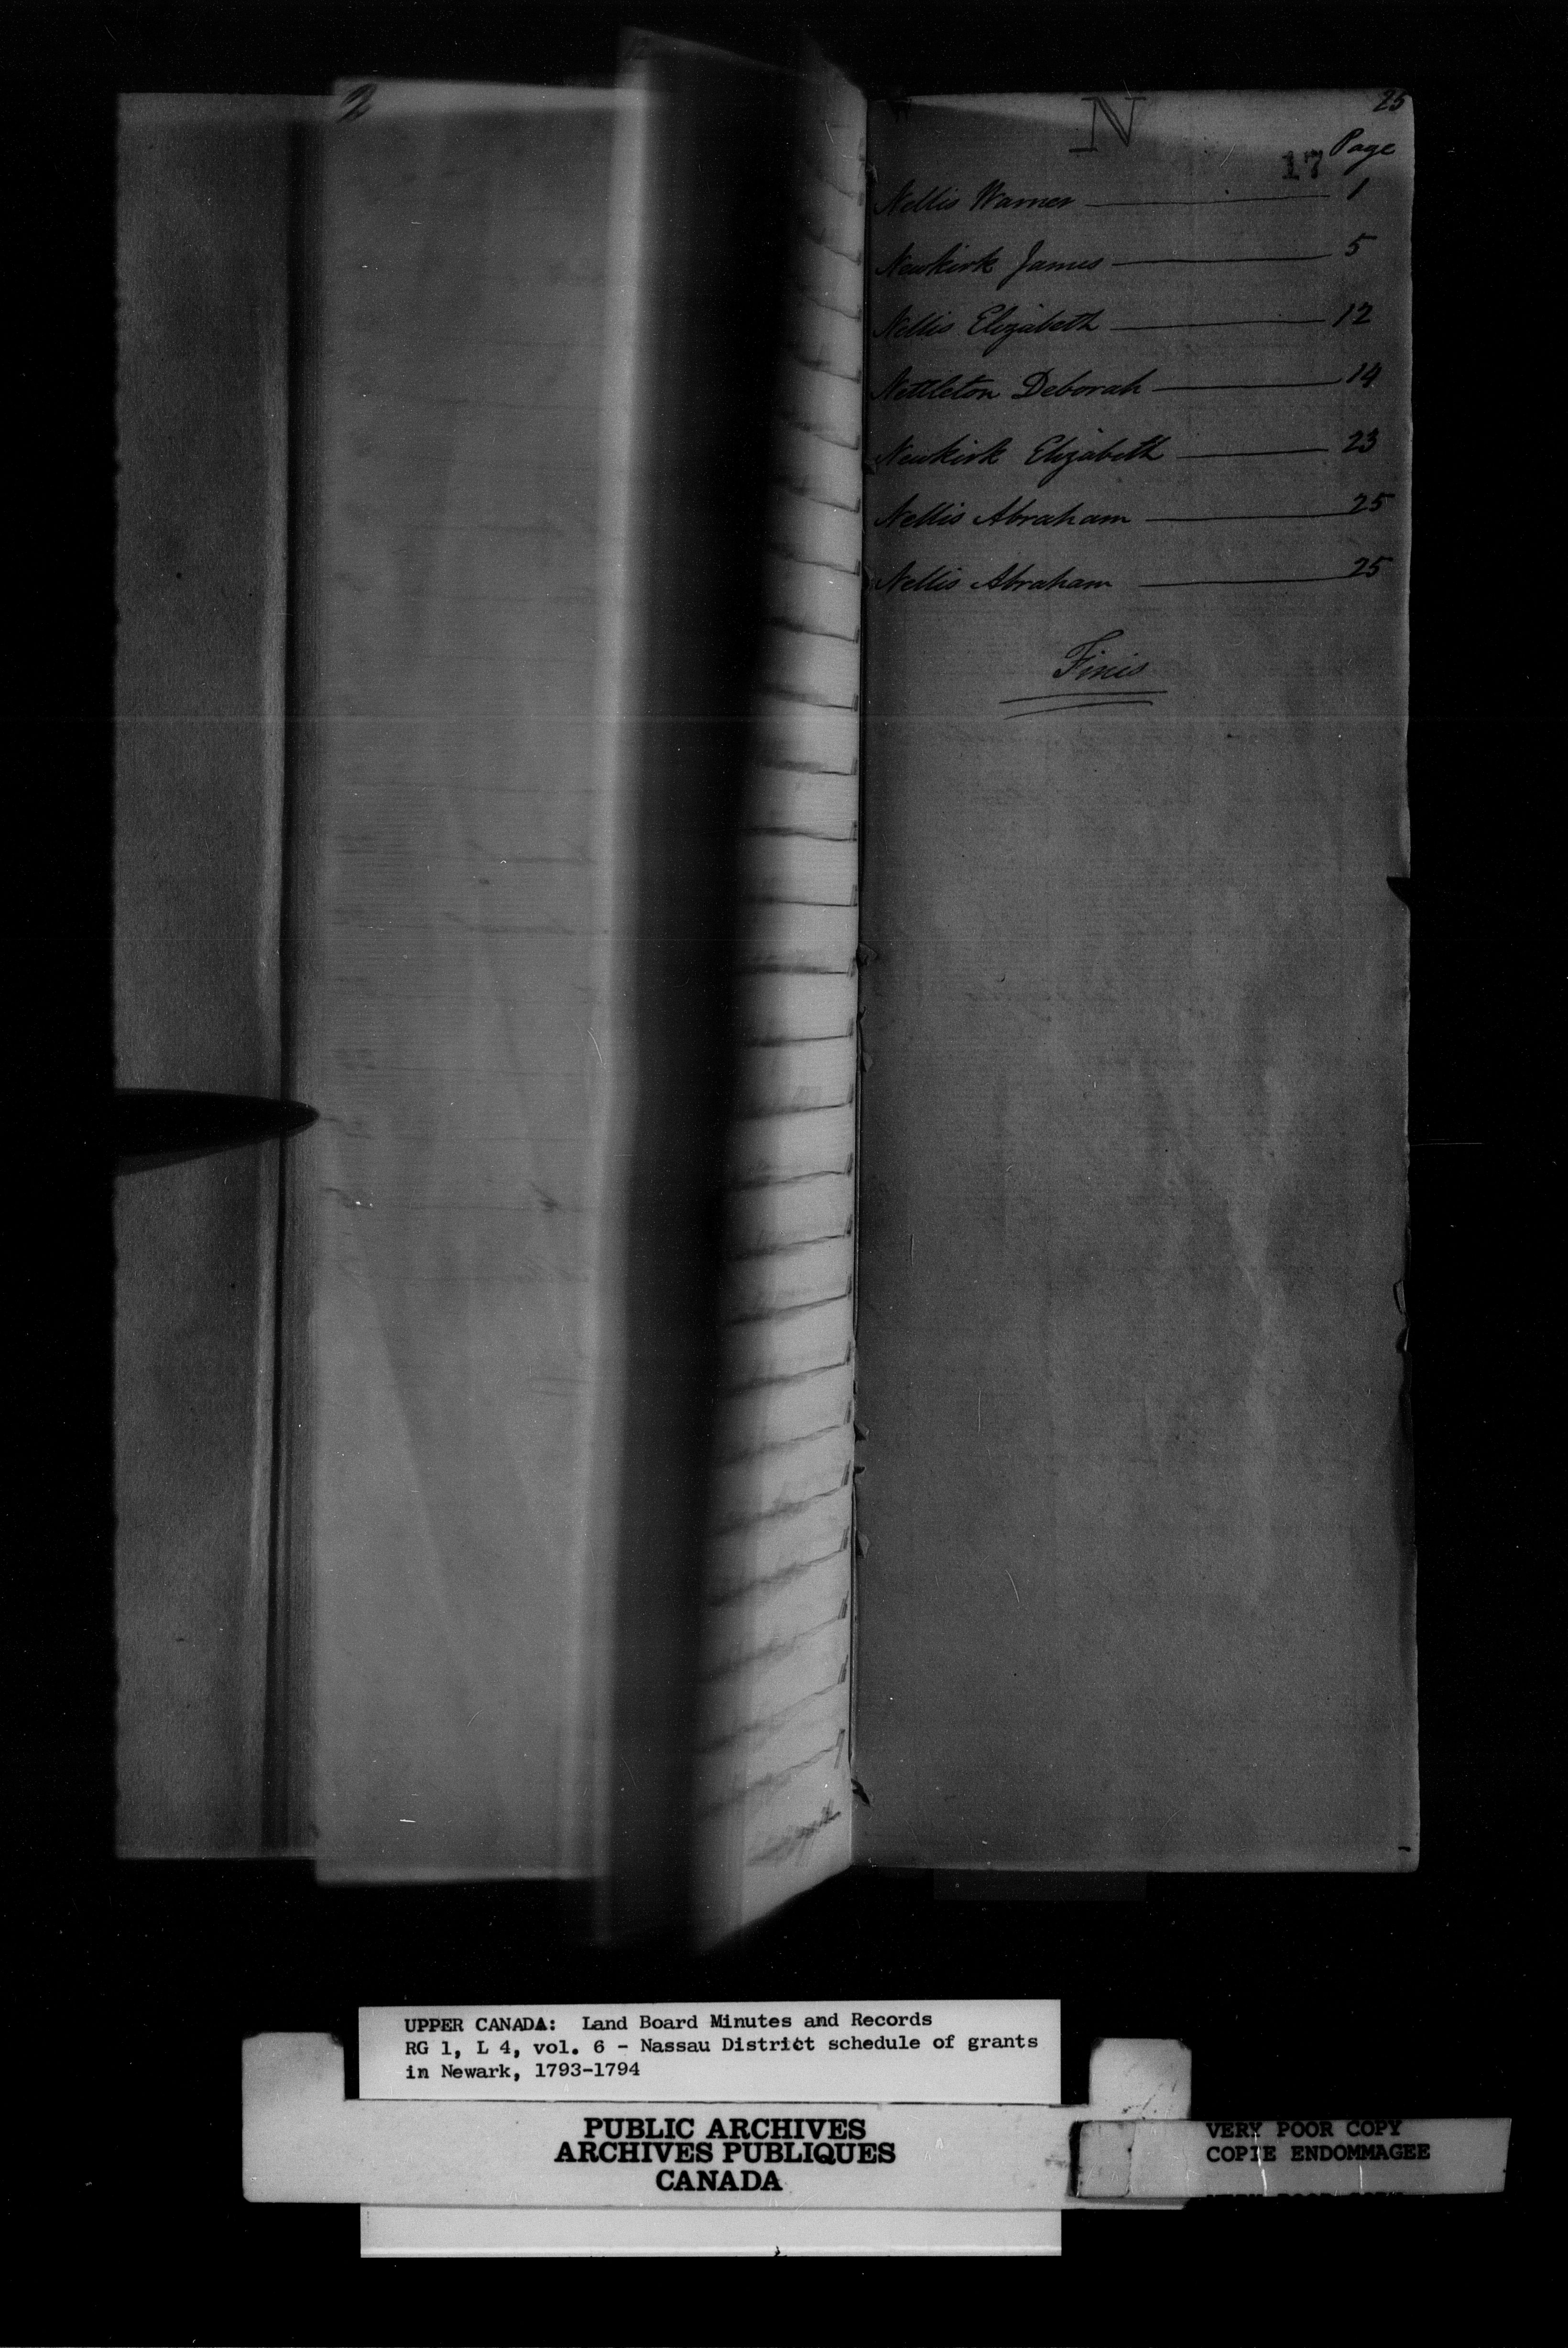 2
N
25
17
Page
Nellis Warner 1
Newkirk James 5
Nellis Elizabeth 12
Nettleton Deborah 14
Newkirk Elizabeth 23
Nellis Abraham 25
Nellis Abraham 25
Finis
UPPER CANADA: Land Board Minutes and Records
RG 1, L 4, vol. 6 - Nassau District schedule of grants
in Newark, 1793-1794
PUBLIC ARCHIVES
ARCHIVES PUBLIQUES
CANADA
VERY POOR COPY
COPIE ENDOMMAGEE